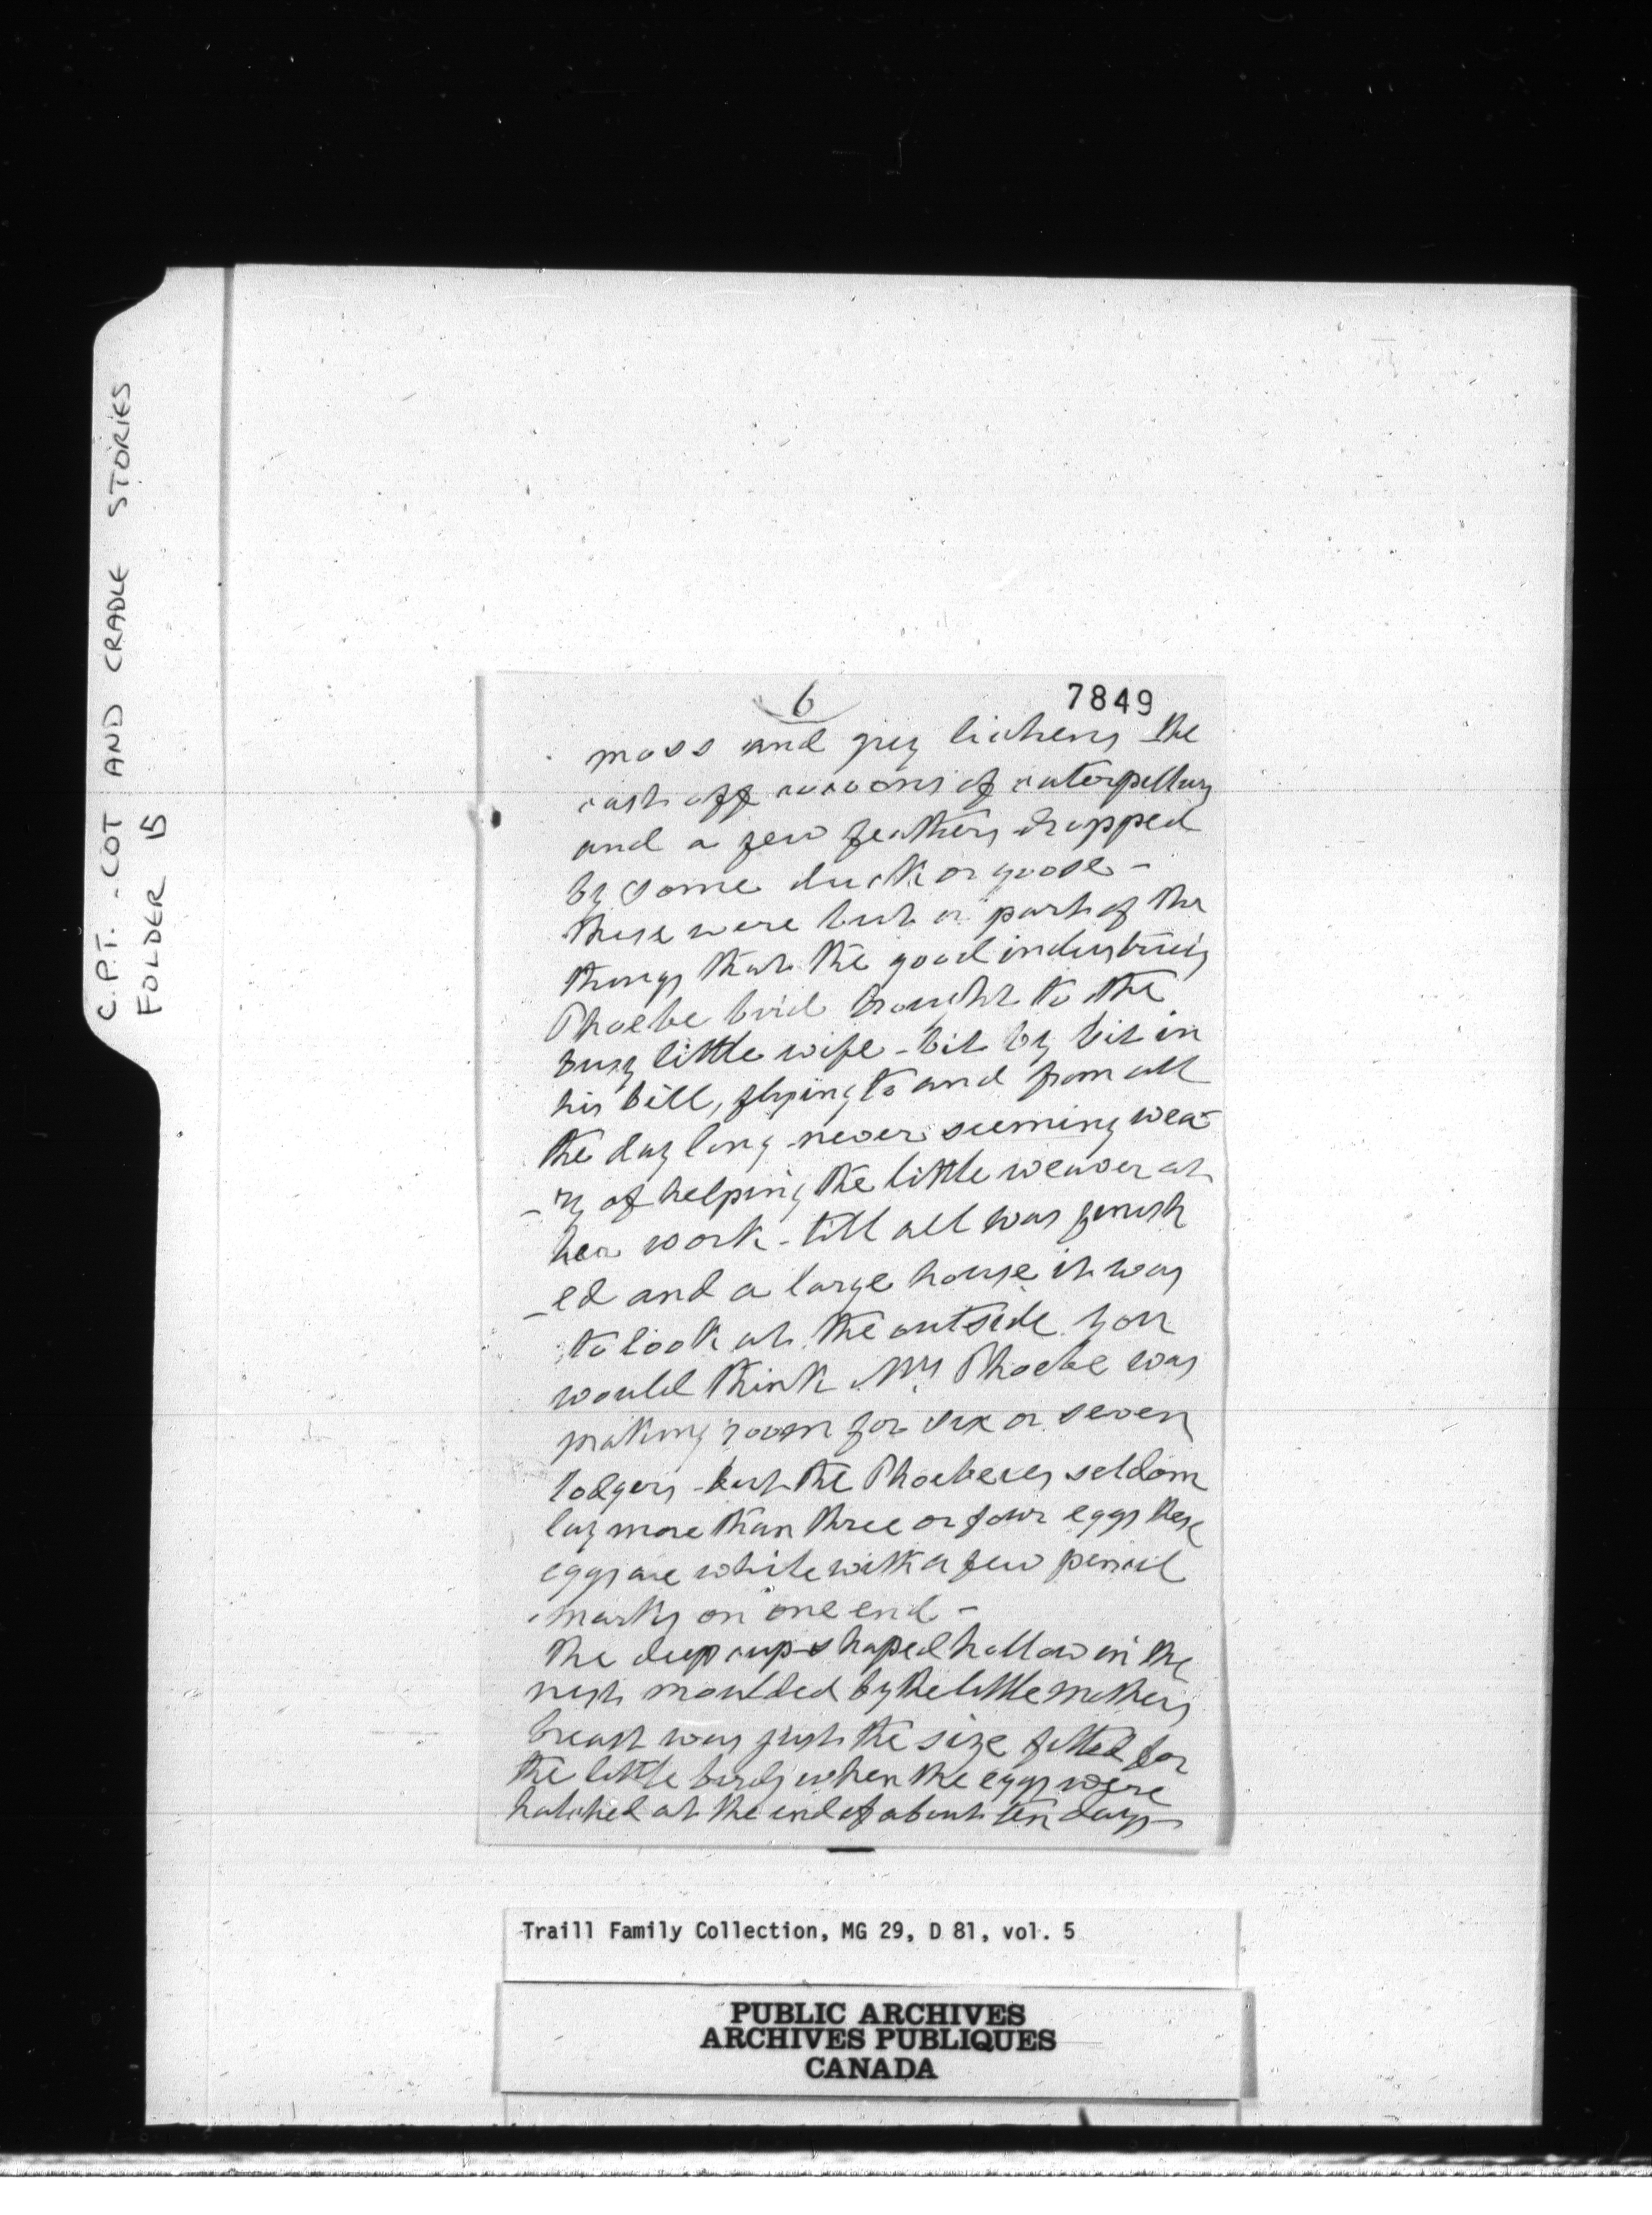 C.P.T. - COT AND CRADLE STORIES
FOLDER 15
6
7849
moss and grey lichens the
cast off cocoons of caterpillars
and a few feathers dropped
by some duck or goose -
these were but a part of the
things that the good industrious
Phoebe bird brought to the
busy little wife - bit by bit in
his bill, flying to and from all
the day long never seeming wea-
-ry of helping the little weaver at
her work - till all was finish
-ed and a large house it was
to look at the outside you
would think Mrs Phoebe was
making room for six or seven
lodgers - but the Phoebees seldom
lay more than three or four eggs these
eggs are white with a few pencil
marks on one end -
The deep cup-shaped hollow in the
nest moulded by the little mothers
breast was just the size fitted for
the little birds when the eggs were
hatched at the end of about ten days -
Traill Family Collection, MG 29, D 81, vol. 5
PUBLIC ARCHIVES
ARCHIVES PUBLIQUES
CANADA